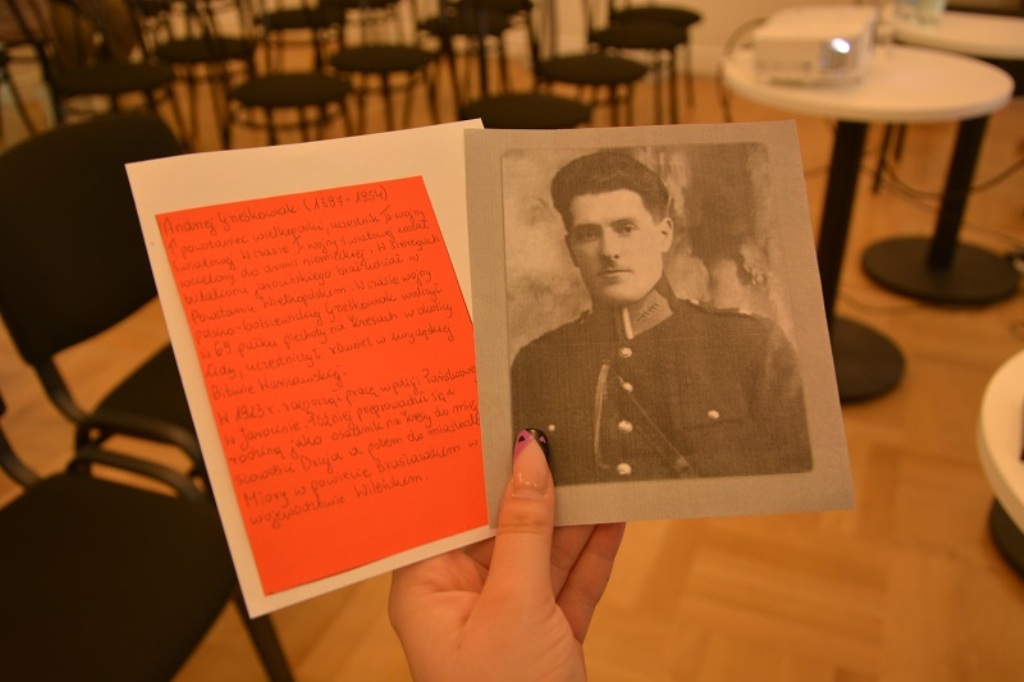 Andrzej Greśkowiak (1897-1954)
powstaniec wielkopolski, uczestnik II wojny
światowej. W czasie I wojny światowej został
wcielony do armii niemieckiej. W szeregach
batalionu jarocińskiego brał udział w
Powstaniu Wielkopolskim. W czasie wojny
polsko-bolszewickiej Greśkowiak walczył
w 69 pułku piechoty na Kresach w okolicy
Lidy, uczestniczył również w zwycięskiej
Bitwie Warszawskiej.
W 1923 r. rozpoczął pracę w policji Państwowej
w Jarocinie. Później przeprowadził się z
rodziną jako osadnik na kresy do miej
scowości Druja a potem do miasteczka
Miory w powiecie brasławskim w
województwie Wileńskim.